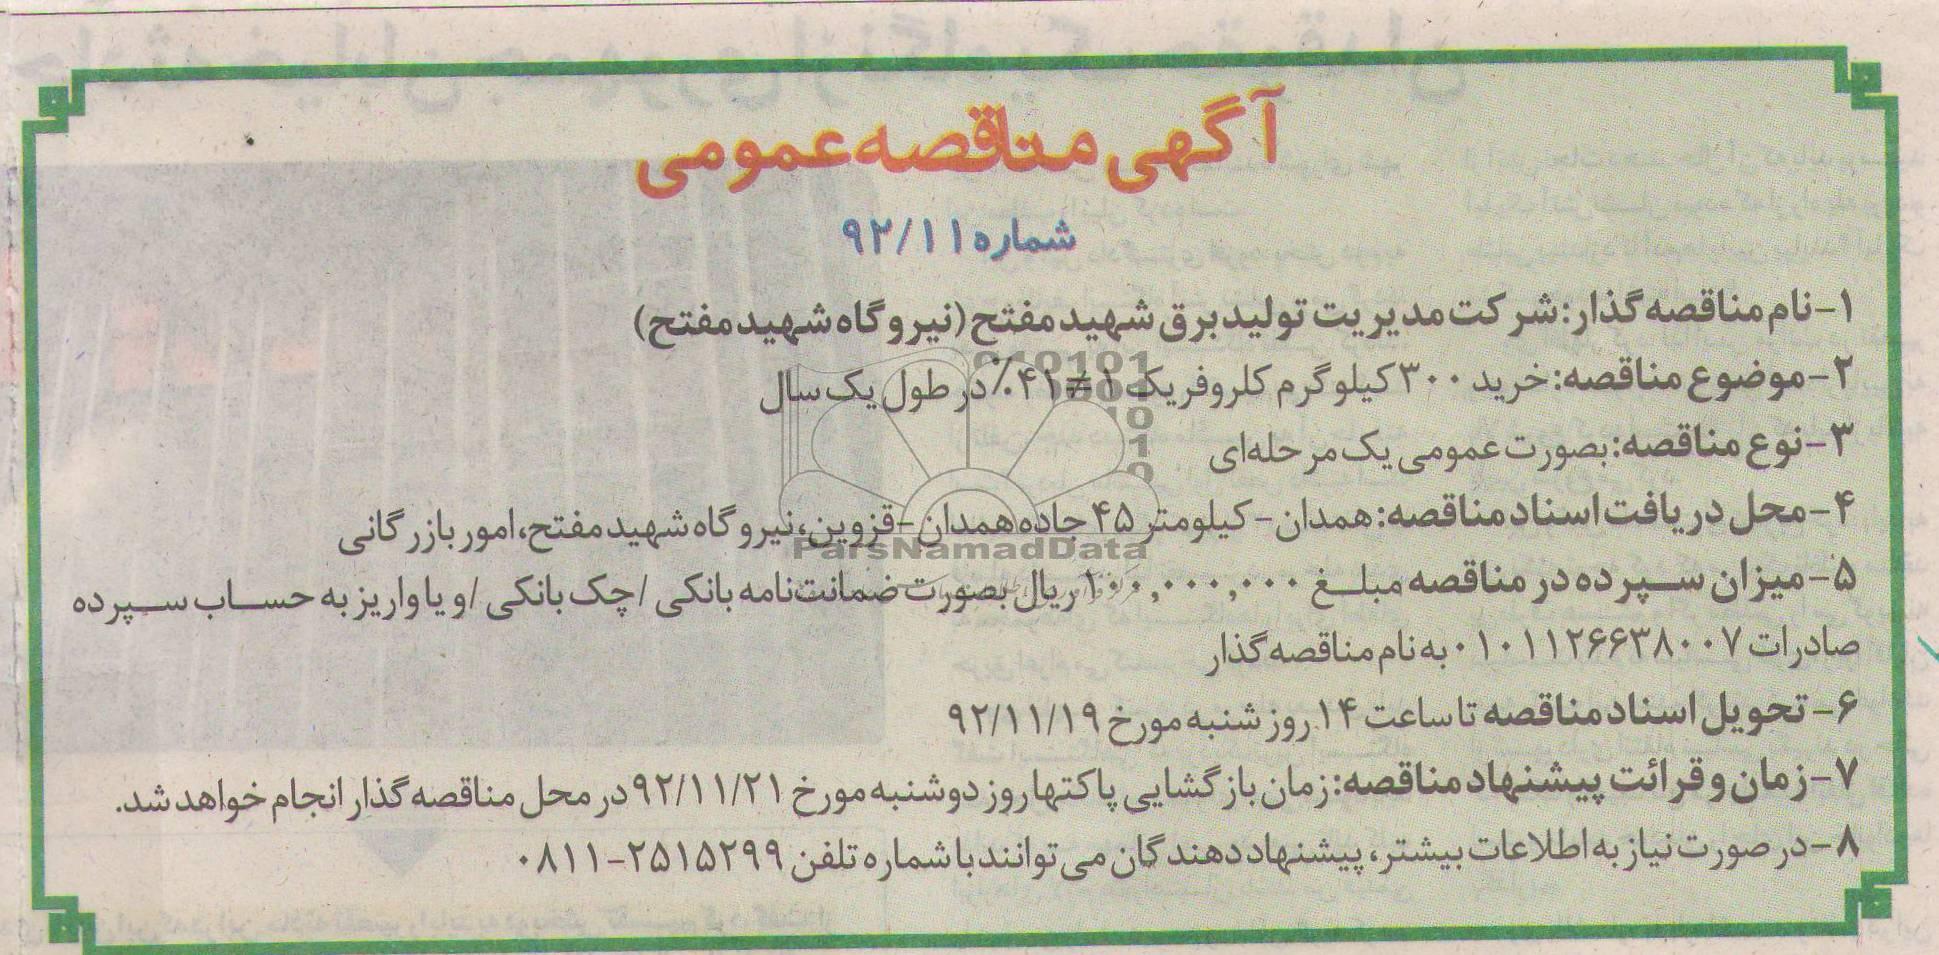 آگهی مناقصه عمومی
شماره ۹۲/۱۱
۱-نام مناقصه گذار: شرکت مدیریت تولید برق شهید مفتح (نیروگاه شهید مفتح)
۲-موضوع مناقصه: خرید ۳۰۰ کیلوگرم کلروفریک ۱≠۴۱٪ در طول یک سال
۳-نوع مناقصه: بصورت عمومی یک مرحله‌ای
۴-محل دریافت اسناد مناقصه: همدان-کیلومتر ۴۵ جاده همدان-قزوین، نیروگاه شهید مفتح، امور بازرگانی
۵-میزان سپرده در مناقصه مبلغ ۱۰۰,۰۰۰,۰۰۰ ریال بصورت ضمانت‌نامه بانکی / چک بانکی / و یا واریز به حساب سپرده
صادرات ۰۱۰۱۱۲۶۶۳۸۰۰۷ به نام مناقصه گذار
۶- تحویل اسناد مناقصه تا ساعت ۱۴ روز شنبه مورخ ۹۲/۱۱/۱۹
۷-زمان و قرائت پیشنهاد مناقصه: زمان بازگشایی پاکتها روز دوشنبه مورخ ۹۲/۱۱/۲۱ در محل مناقصه گذار انجام خواهد شد.
۸-در صورت نیاز به اطلاعات بیشتر، پیشنهاد دهندگان می توانند با شماره تلفن ۲۵۱۵۲۹۹-۰۸۱۱
ParsNamadData